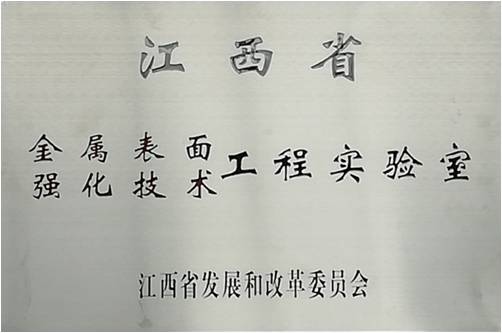 江西省
金属表面
强化技术
工程实验室
江西省发展和改革委员会